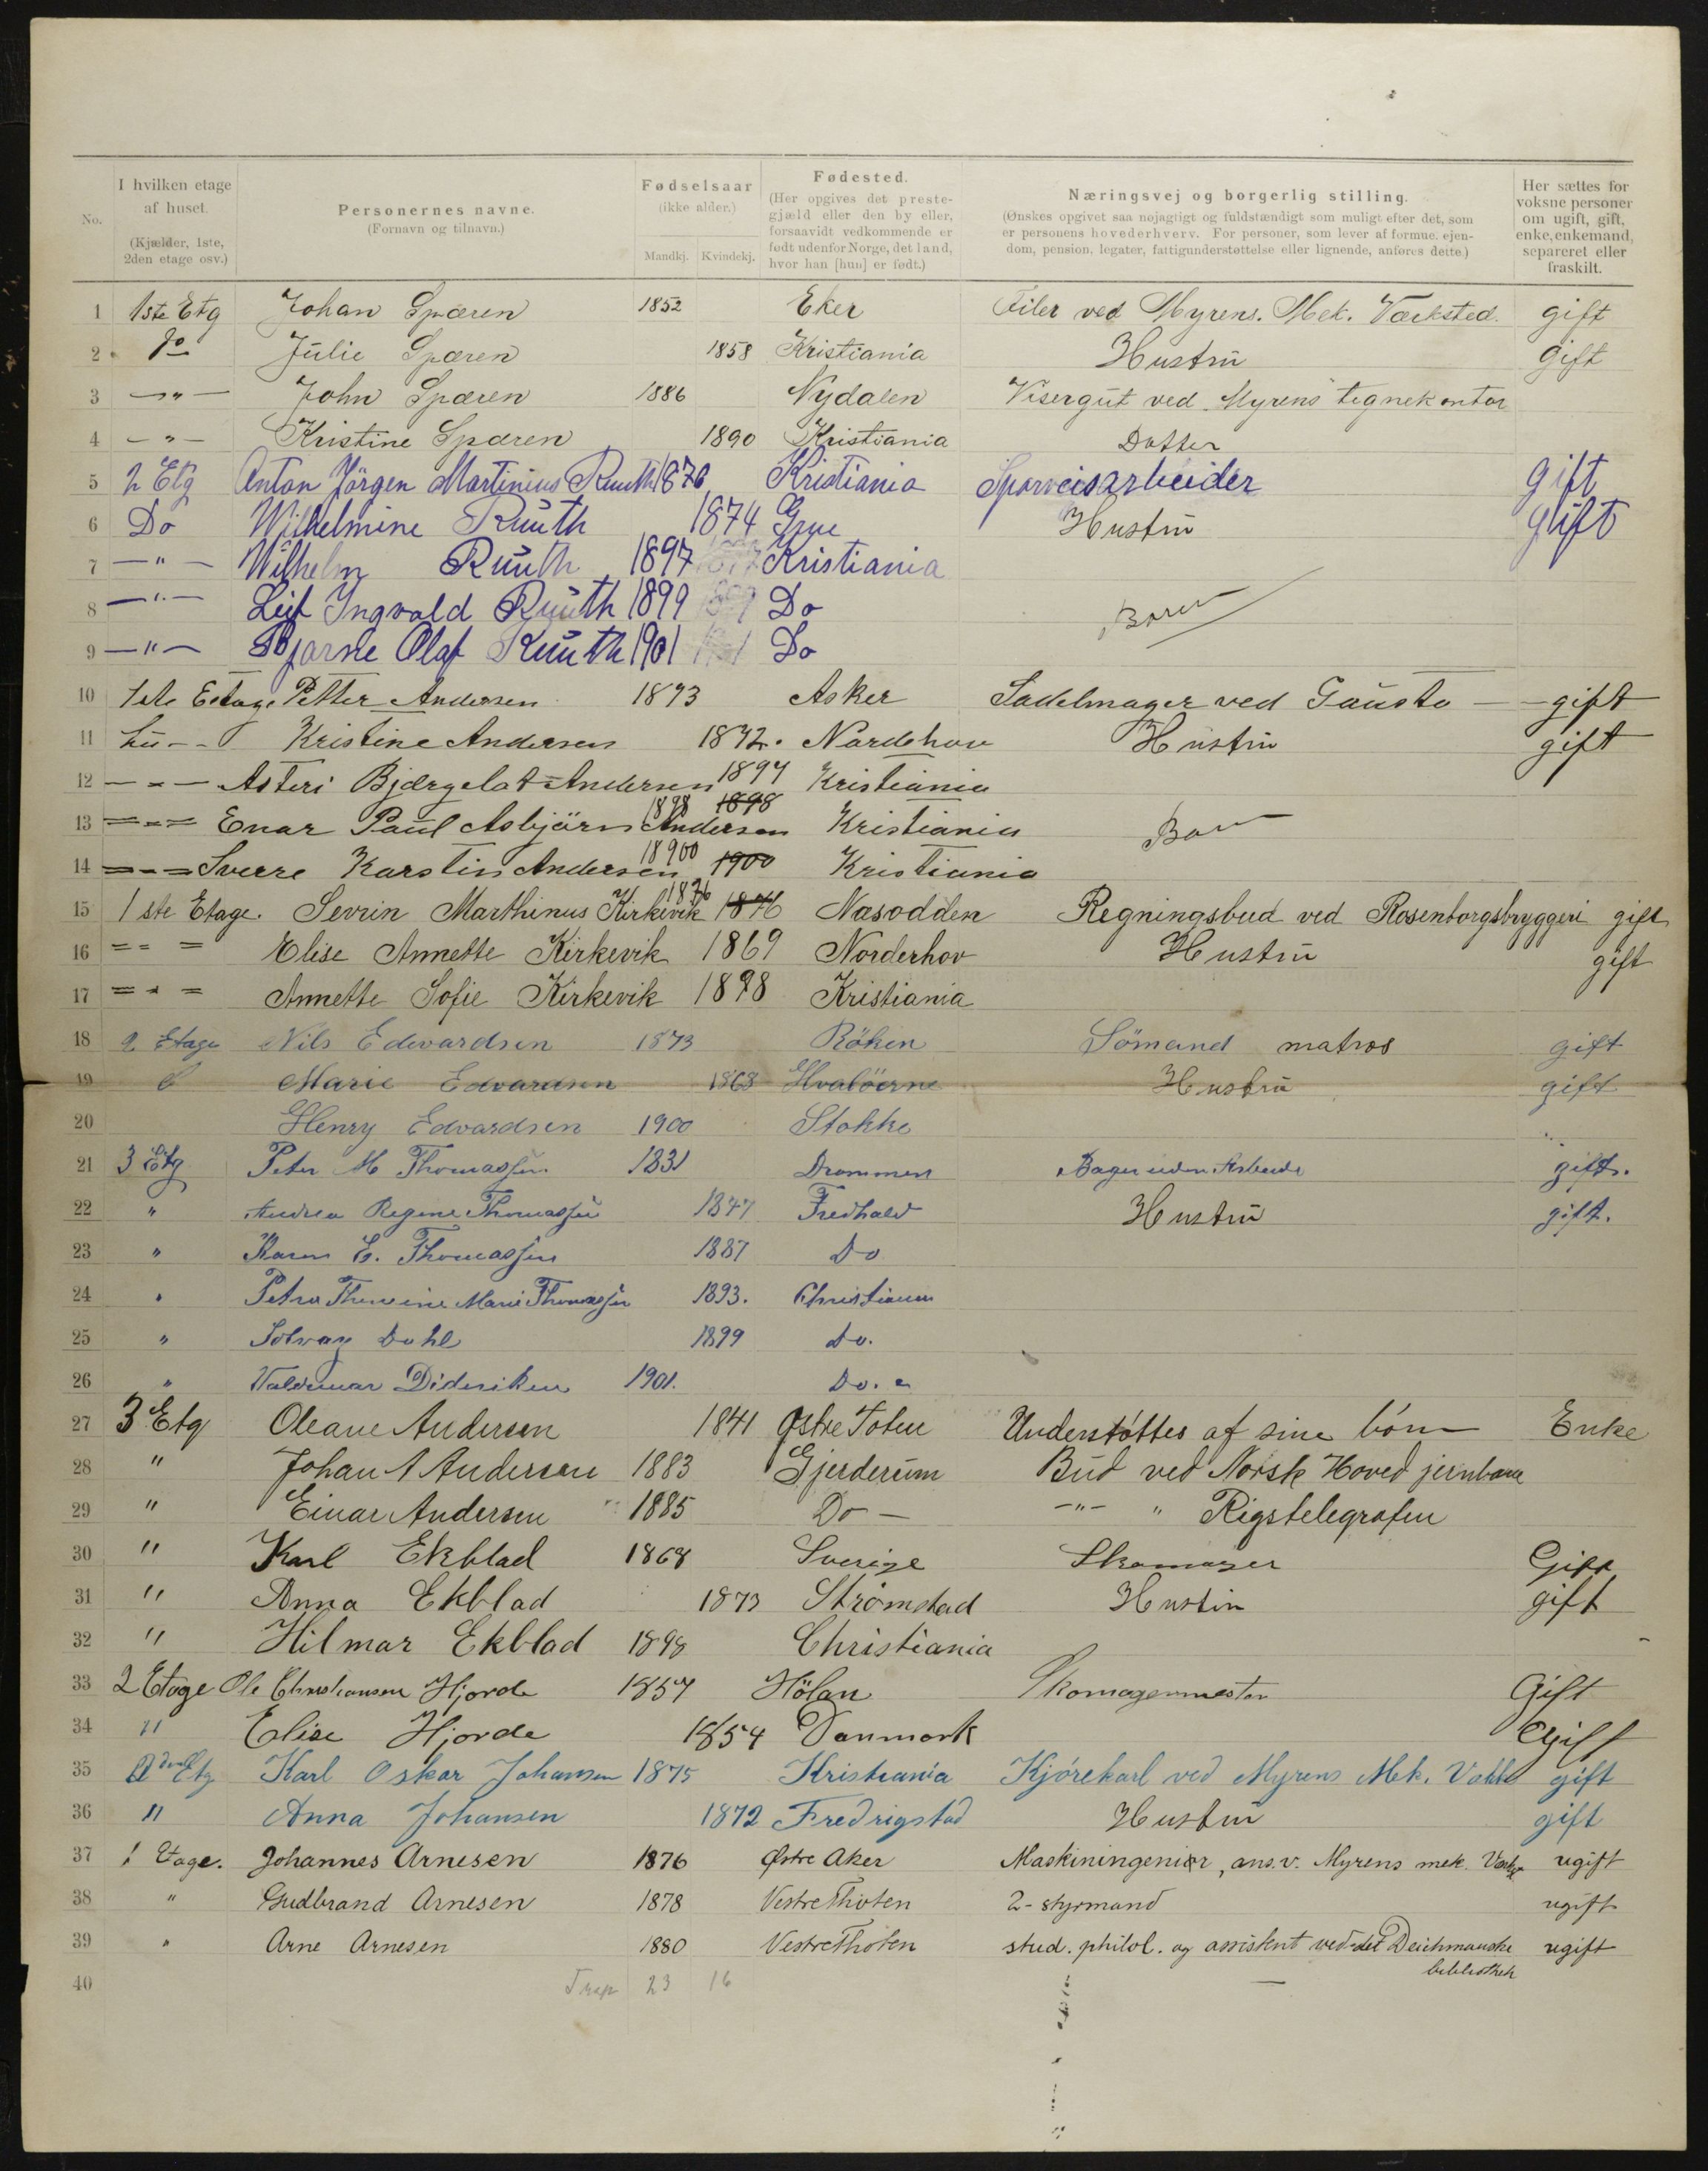 No.
I hvilken etage af huset.
(Kjælder, 1ste, 2den etage osv.)
Personernes navne.
(Fornavn og tilnavn.)
Fødselsaar
(ikke alder.)
Mandkj. Kvindekj.
Fødested.
(Her opgives det prestegjæld eller den by eller, forsaavidt vedkommende er født udenfor Norge, det land, hvor han [hun] er født.)
Næringsvej og borgerlig stilling.
(Ønskes opgivet saa nøjagtigt og fuldstændigt som muligt efter det, som er personens hovederhverv. For personer, som lever af formue, ejendom, pension, legater, fattigunderstøttelse eller lignende, anføres dette.)
Her sættes for voksne personer om ugift, gift, enke, enkemand, separeret eller fraskilt.
1 1ste Etg Johan Spæren 1852 Eker Filer ved Myrens. Mek. Værksted. gift
2 Do Julie Spæren 1858 Kristiania Hustru gift
3 —"— John Spæren 1886 Nydalen Visergut ved Myrens tegnekontor
4 —"— Kristine Spæren 1890 Kristiania Datter
5 2 Etg Anton Jörgen Martinius Ruuth 1876 Kristiania Sporveisarbeider gift
6 Do Wilhelmine Ruuth 1874 Grue Hustru gift
7 —"— Wilhelm Ruuth 1897 Kristiania
8 —"— Leif Ingvald Ruuth 1899 Do Børn
9 —"— Bjarne Olaf Ruuth 1901 Do
10 1ste Etage Petter Andersen 1873 Asker Sadelmager ved Gausta — gift
11 Kristine Andersen 1872. Nordehov Hustru gift
12 —"— Asteri Bjærgelat Andersen 1894 Kristiania
13 —"— Enar Paul Asbjörn Andersen 1898 1898 Kristiania Børn
14 —"— Sverre Karstin Andersen 18900 1900 Kristiania
15 1ste Etage. Sevrin Marthinus Kirkevik 1876 1876 Næsodden Regningsbud ved Rosenborgsbryggeri gift
16 —"— Elise Annette Kirkevik 1869 Norderhov Hustru gift
17 —"— Annette Sofie Kirkevik 1898 Kristiania
18 2 Etage Nils Edevardsen 1873 Röken Sömand matros gift
19 Marie Edvardsen 1868 Hvalöerne Hustru gift
20 Henry Edvardsen 1900 Stokke
21 3 Etg Peter M Thomassen 1831 Drammen Bager uden Arbeide gift.
22 " Andrea Regine Thomassen 1847 Fredhald Hustru gift.
23 " Karen E. Thomassen 1887 Do
24 " Petra Marie Thomassen 1893. Christiania
25 " Solvay Dahl 1899 Do.
26 " Valdemar Dideriksen 1901. Do.
27 3 Etg Oleane Andersen 1841 Østre Toten Understöttes af sine börn Enke
28 " Johan A Andersen 1883 Gjerderum Bud ved Norsk Hoved jernbane
29 " Einar Andersen 1885 Do — —"— " Rigstelegrafen
30 " Karl Ekblad 1868 Sverige Skomager Gift
31 " Anna Ekblad 1873 Strömstad Hustru gift
32 " Hilmar Ekblad 1898 Christiania
33 2 Etage Ole Christiansen Hjorde 1857 Hölan Skomagermester Gift
34 " Elise Hjorde 1854 Danmark Gift
35 2den Etg Karl Oskar Johansen 1875 Kristiania Kjörekarl ved Myrens Mek. gift
36 " Anna Johansen 1872 Fredrigstad Hustru gift
37 1 Etage. Johannes Arnesen 1876 Østre Aker Maskiningeniør, ans. v. Myrens mek. ugift
38 " Gudbrand Arnesen 1878 Vestre Thoten 2-styrmand ugift
39 " Arne Arnesen 1880 Vestre Thoten stud. philol. og assistent ved det Deichmanske bibliothek ugift
40 23 16